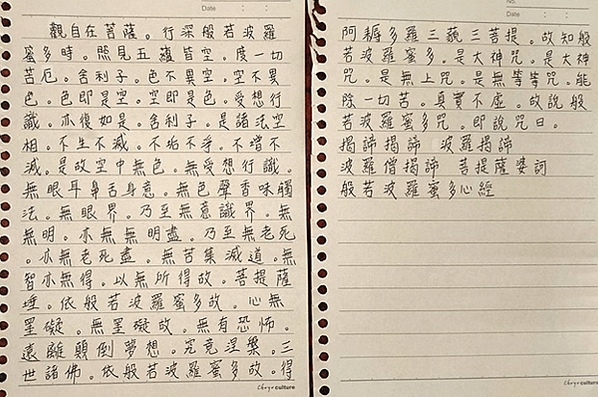 觀自在菩薩。行深般若波羅
蜜多時。照見五蘊皆空。度一切
苦厄。舍利子。色不異空。空不異
色。色即是空。空即是色。受想行
識。亦復如是。舍利子。是諸法空
相。不生不滅。不垢不淨。不增不
減。是故空中無色。無受想行識。
無眼耳鼻舌身意。無色聲香味觸
法。無眼界。乃至無意識界。無
無明。亦無無明盡。乃至無老死
。亦無老死盡。無苦集滅道。無
智亦無得。以無所得故。菩提薩
埵。依般若波羅蜜多故。心無
罣礙。無罣礙故。無有恐怖。
遠離顛倒夢想。究竟涅槃。三
世諸佛。依般若波羅蜜多故。得
culture
Date : :
No.
Date : :
阿耨多羅三藐三菩提。故知般
若波羅蜜多。是大神咒。是大神
咒。是無上咒。是無等等咒。能
除一切苦。真實不虛。故說般
若波羅蜜多咒。即說咒曰。
揭諦揭諦 波羅揭諦
波羅僧揭諦 菩提薩婆訶
般若波羅蜜多心經
culture